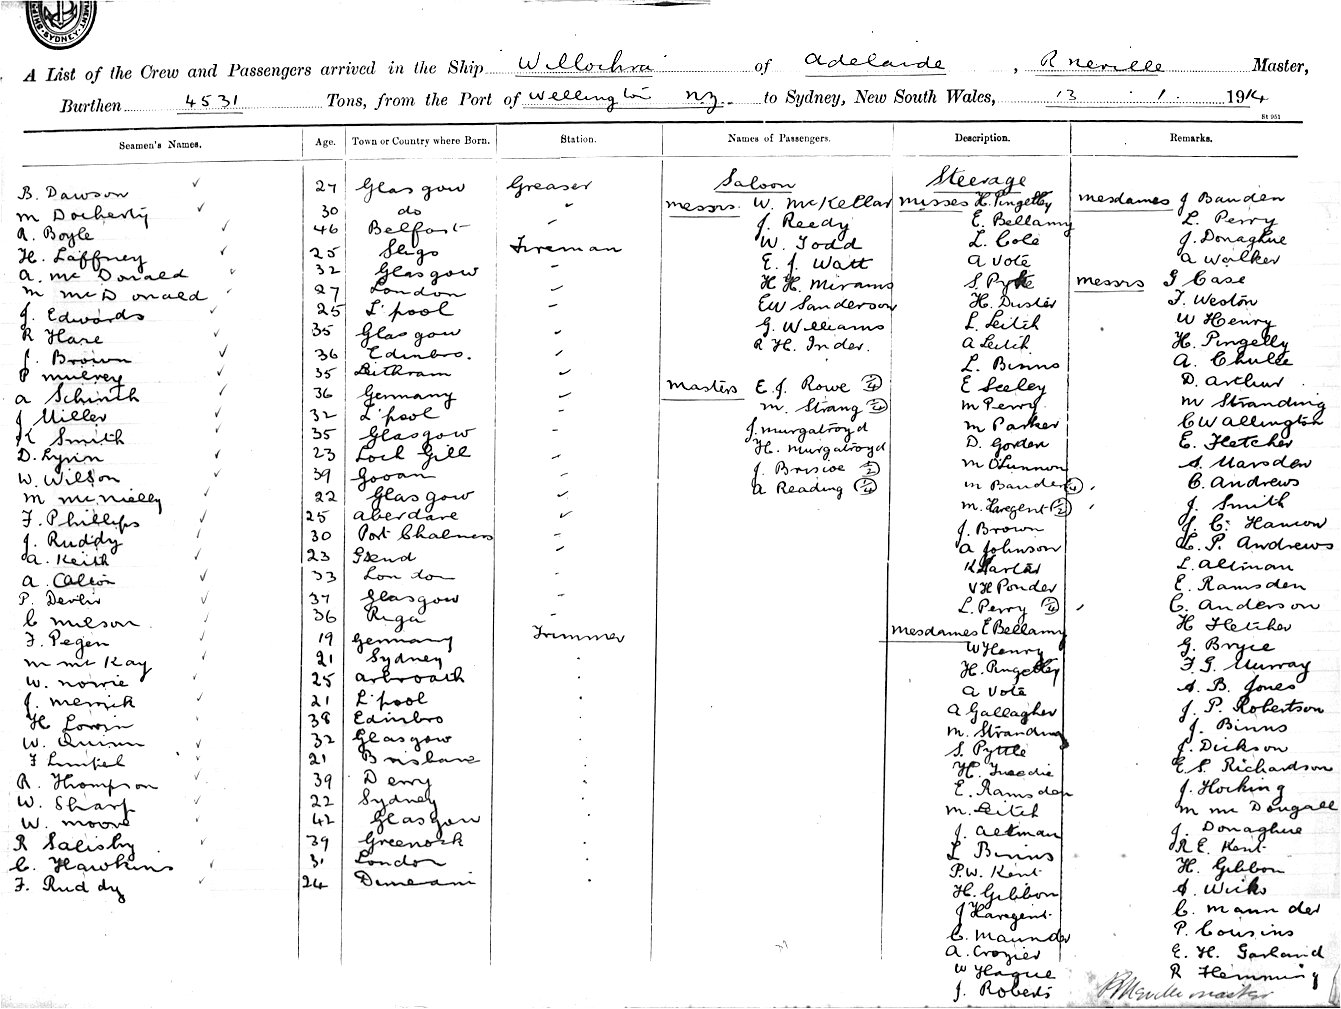 SYDNEY
A List of the Crew and Passengers arrived in the Ship Willochra of Adelaide, R Neville Master,
Burthen 4531 Tons, from the Port of Wellington N.Z. to Sydney, New South Wales, 13 . 1 . 1914
St 951
Seamen's Names. Age. Town or Country where Born. Station. Names of Passengers. Description. Remarks.
Saloon Steerage
B. Dawson 27 Glasgow Greaser
M Docherty 30 do "
R. Boyle 46 Belfast
H. Laffney 25 Sligo Fireman
A. Mc Donald 32 Glasgow "
M McDonald 27 London "
J. Edwards 25 L'pool "
R Hare 35 Glasgow "
J. Brown 36 Edinbro. "
P Mulrey 35 "
A Schinth 36 Germany "
J Miller 32 L'pool "
K Smith 35 Glasgow "
D. Lynn 23 Loch Gill "
W. Wilson 39 Govan "
M McNielly 22 Glasgow "
F. Phillips 25 Aberdare "
J. Ruddy 30 Port Chalmers "
A. Keith 23 "
A Calton 33 London "
P. Devlin 37 Glasgow "
C Milson 36 Riga "
F. Pegen 19 Germany Trimmer
M Mc Kay 21 Sydney "
W. Nowie 25 Arbroath "
J. Merrik 21 L'pool "
H Lowin 38 Edinbro "
W. Quinn 32 Glasgow "
F 21 Brisbane "
R. Thompson 39 Derry "
W. Sharp 22 Sydney "
W. Moore 42 Glasgow "
R Salisby 39 Greenock "
C. Hawkins 31 London "
F. Ruddy 24 Dunedin "
Messrs. W. McKellar
J. Reedy
W. Todd
E. J. Watt
H H. Mirams
EW Sanderson
G. Williams
R H. Inder.
Masters E. J. Rowe 1/4
M. Strang 1/4
J. Murgatroyd
H. Murgatroyd
J. Briscoe 1/2
A Reading 1/4
Misses H. Pingelly
E. Bellamy
L. Cole
A Vote
S. Pytte
H. Duster
L. Leitch
A Leitch
L. Binns
E Seeley
M Perry
M Parker
D. Gorden
M O'Lunnon
M Bander 1/4
M. Hargent 1/2
J. Brown
A Johnson
K Harter
V H Ponder
L. Perry 1/4
Mesdames E Bellamy
W Henry
H. Pingelly
A Vote
A Gallagher
M. Stranding
S. Pyttle
H. Tweedie
E. Ramsden
M. Leitch
J. Altman
L Binns
P.W. Kent
H. Gibbon
J Hargent
C. Maunder
A. Crozier
W Hague
J. Roberts
Mesdames J Banden
L. Perry
J. Donaghue
A Walker
Messrs G Case
F. Weston
W Henry
H. Pingelly
A. Chulle
D. Arthur
M Stranding
C Wallington
E. Fletcher
S. Marsden
C. Andrews
J. Smith
J. C. Hanson
C. P. Andrews
L. Altman
E. Ramsden
C. Anderson
H Fletcher
G. Bryce
F. G. Murray
S. B. Jones
J. P. Robertson
J. Binns
J. Dickson
E S. Richardson
J. Hocking
M Mc Dougall
J. Donaghue
R E. Kent
H. Gibbon
S. Wicks
C. Maunder
P. Cousins
E. H. Garland
R Flemming
R Neville Master